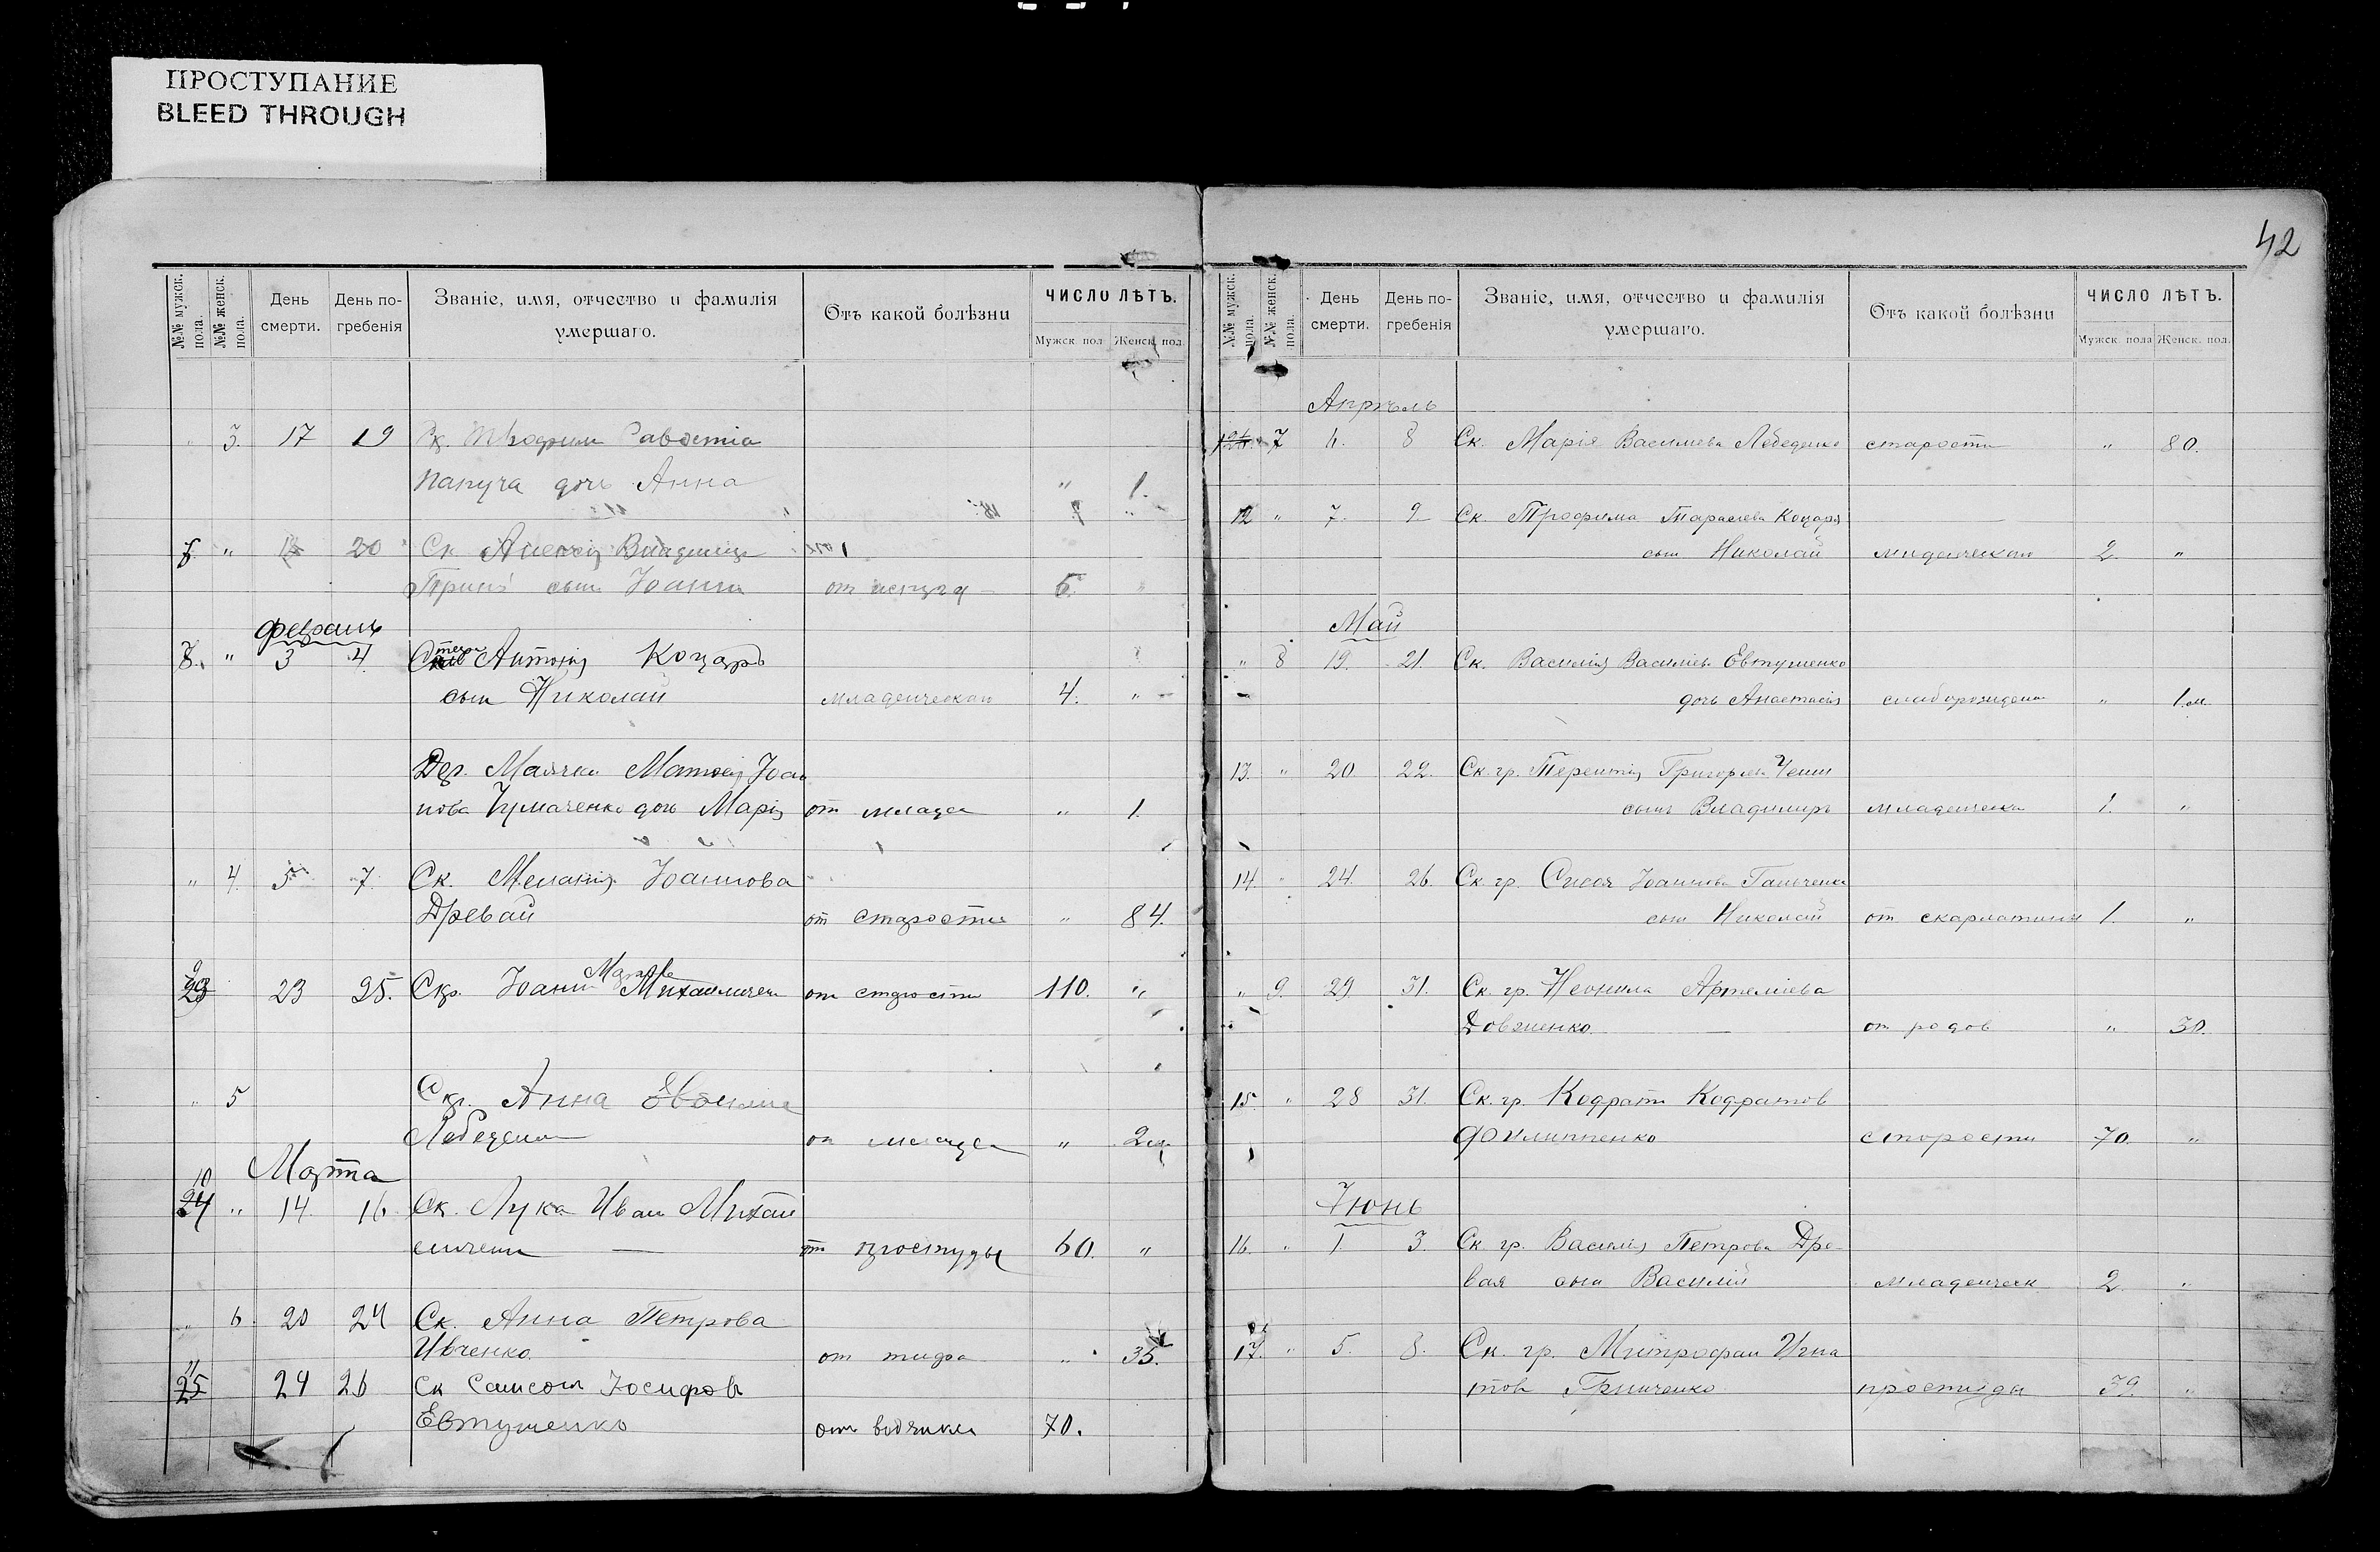 ПРОСТУПАНИЕ
BLEED THROUGH
42
№№ мужск. пола.
№№ женск. пола.
День смерти.
День по-гребенія
Званіе, имя, отчество и фамилія
умершаго.
Отъ какой болѣзни
ЧИСЛО ЛѢТЪ.
Мужск пол Женск. пол.
" 3. 17 19
дочь Анна " 1.
" 20 Ск
сын Іоанн от испуга 6.
8. " 3 4 Антонія Коцаръ
сын Николай младенческой 4. "
Дер. Маячки Матѳея Іоан
нова Чумаченко дочь Марія от младен " 1.
" 4. 5 7. Ск. Меланія Іоаннова
Древай от старости " 84.
9
23 25. Іоанн Михайличен от старости 110. "
" 5 Анна
Лебеденко " 2 м.
Марта
10
24 " 14. 16 Ск. Лука Иван Михай
личенко — от простуды 60. "
" 6 20 24 Ск. Анна Петрова
Ивченко от тифа " 35.
11
25 24 26 Ск Самсон Іосифов
Евтушенко от водянки 70.
№№ мужск. пола.
№№ женск. пола.
День смерти.
День по-гребенія
Званіе, имя, отчество и фамилія
умершаго.
Отъ какой болѣзни
ЧИСЛО ЛѢТЪ.
Мужск. пола Женск. пол.
Апрѣль
7 6. 8 Ск. Марія Василиева Лебеденко старости " 80.
12 " 7. 9 Ск. Трофима Тарасиева Коцаря
сын Николай младенческой 2. "
Май
" 8 19. 21. Ск. Василія Василіев Евтушенко
дочь Анастасія слаборожден " 1 м.
13. " 20 22. Ск. гр. Терентія Григориева
сынъ Владимиръ младенческ 1. "
14. " 24. 26. Ск. гр. Сисоя Іоаннова Гальченко
сын Николай от скарлатины 1. "
" 9. 29 31. Ск. гр. Неонила Артеміева
Довженко — от родов " 30.
15. " 28 31. Ск. гр. Кодрат Кодратов
Филиппенко старости 70. "
Іюнь
16. " 1. 3. Ск. гр. Василія Петрова Дре-
вая сын Василій младенческ 2. "
17. " 5. 8. Ск. гр. Митрофан Игна
тов Гринченко простуды 39. "